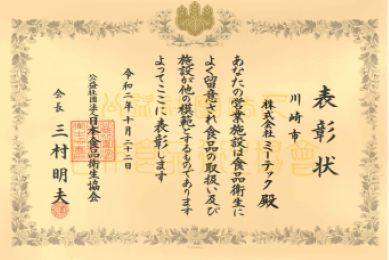 表彰状
川崎市
株式会社ミーチック殿
あなたの営業施設は食品衛生に
よく留意され食品の取扱い及び
施設が他の模範とするものであります
よってここに表彰します
令和二年十月二十二日
公益社団法人日本食品衛生協会
会長 三村明夫